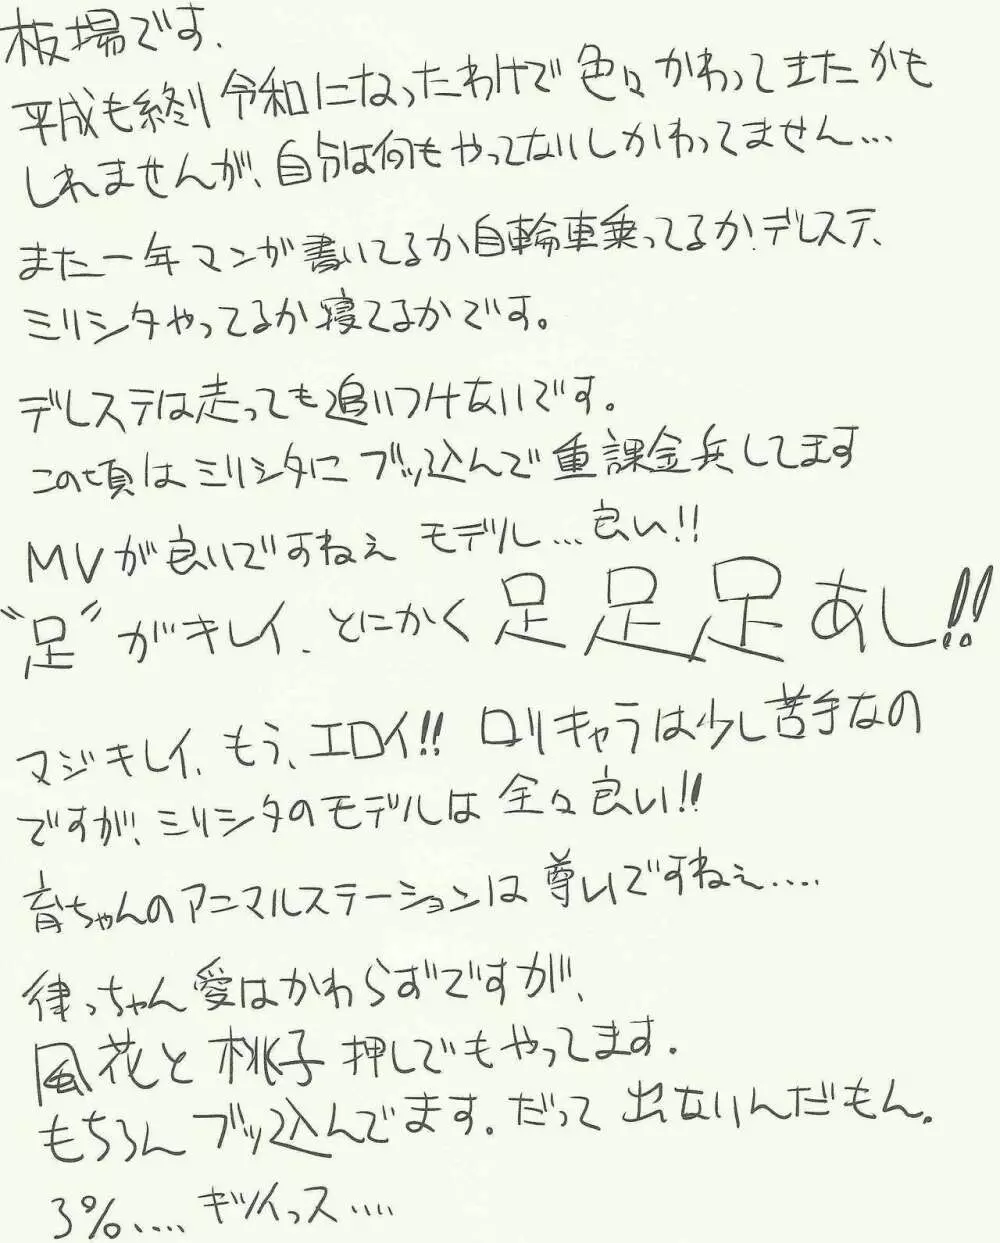 板場です.
平成も終り令和になったわけで色々かわってきたかも
しれませんが、自分は何もやってないしかわってません…
また一年マンガ書いてるか自輪車乗ってるか.デレステ、
ミリシタやってるか寝てるかです。
デレステは走っても追いつけないです。
この頃はミリシタにブッ込んで重課金兵してます
MVが良いですねぇ モデル…良い!!
"足"がキレイ.とにかく足足足あし!!
マジキレイ.もう、エロイ!! ロリキャラは少し苦手なの
ですが、ミリシタのモデルは全々良い!!
育ちゃんのアニマルステーションは尊いですねぇ....
律っちゃん愛はかわらずですが、
風花と桃子押しでもやってます.
もちろんブッ込んでます.だって出ないんだもん.
3%.... キツイっス....